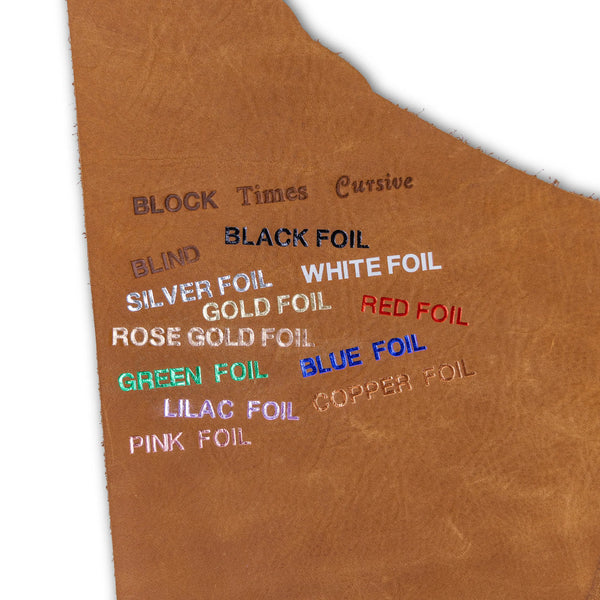 BLOCK Times Cursive
BLACK FOIL
BLIND
WHITE FOIL
SILVER FOIL
GOLD FOIL
RED FOIL
ROSE GOLD FOIL
BLUE FOIL
GREEN FOIL
COPPER FOIL
LILAC FOIL
PINK FOIL